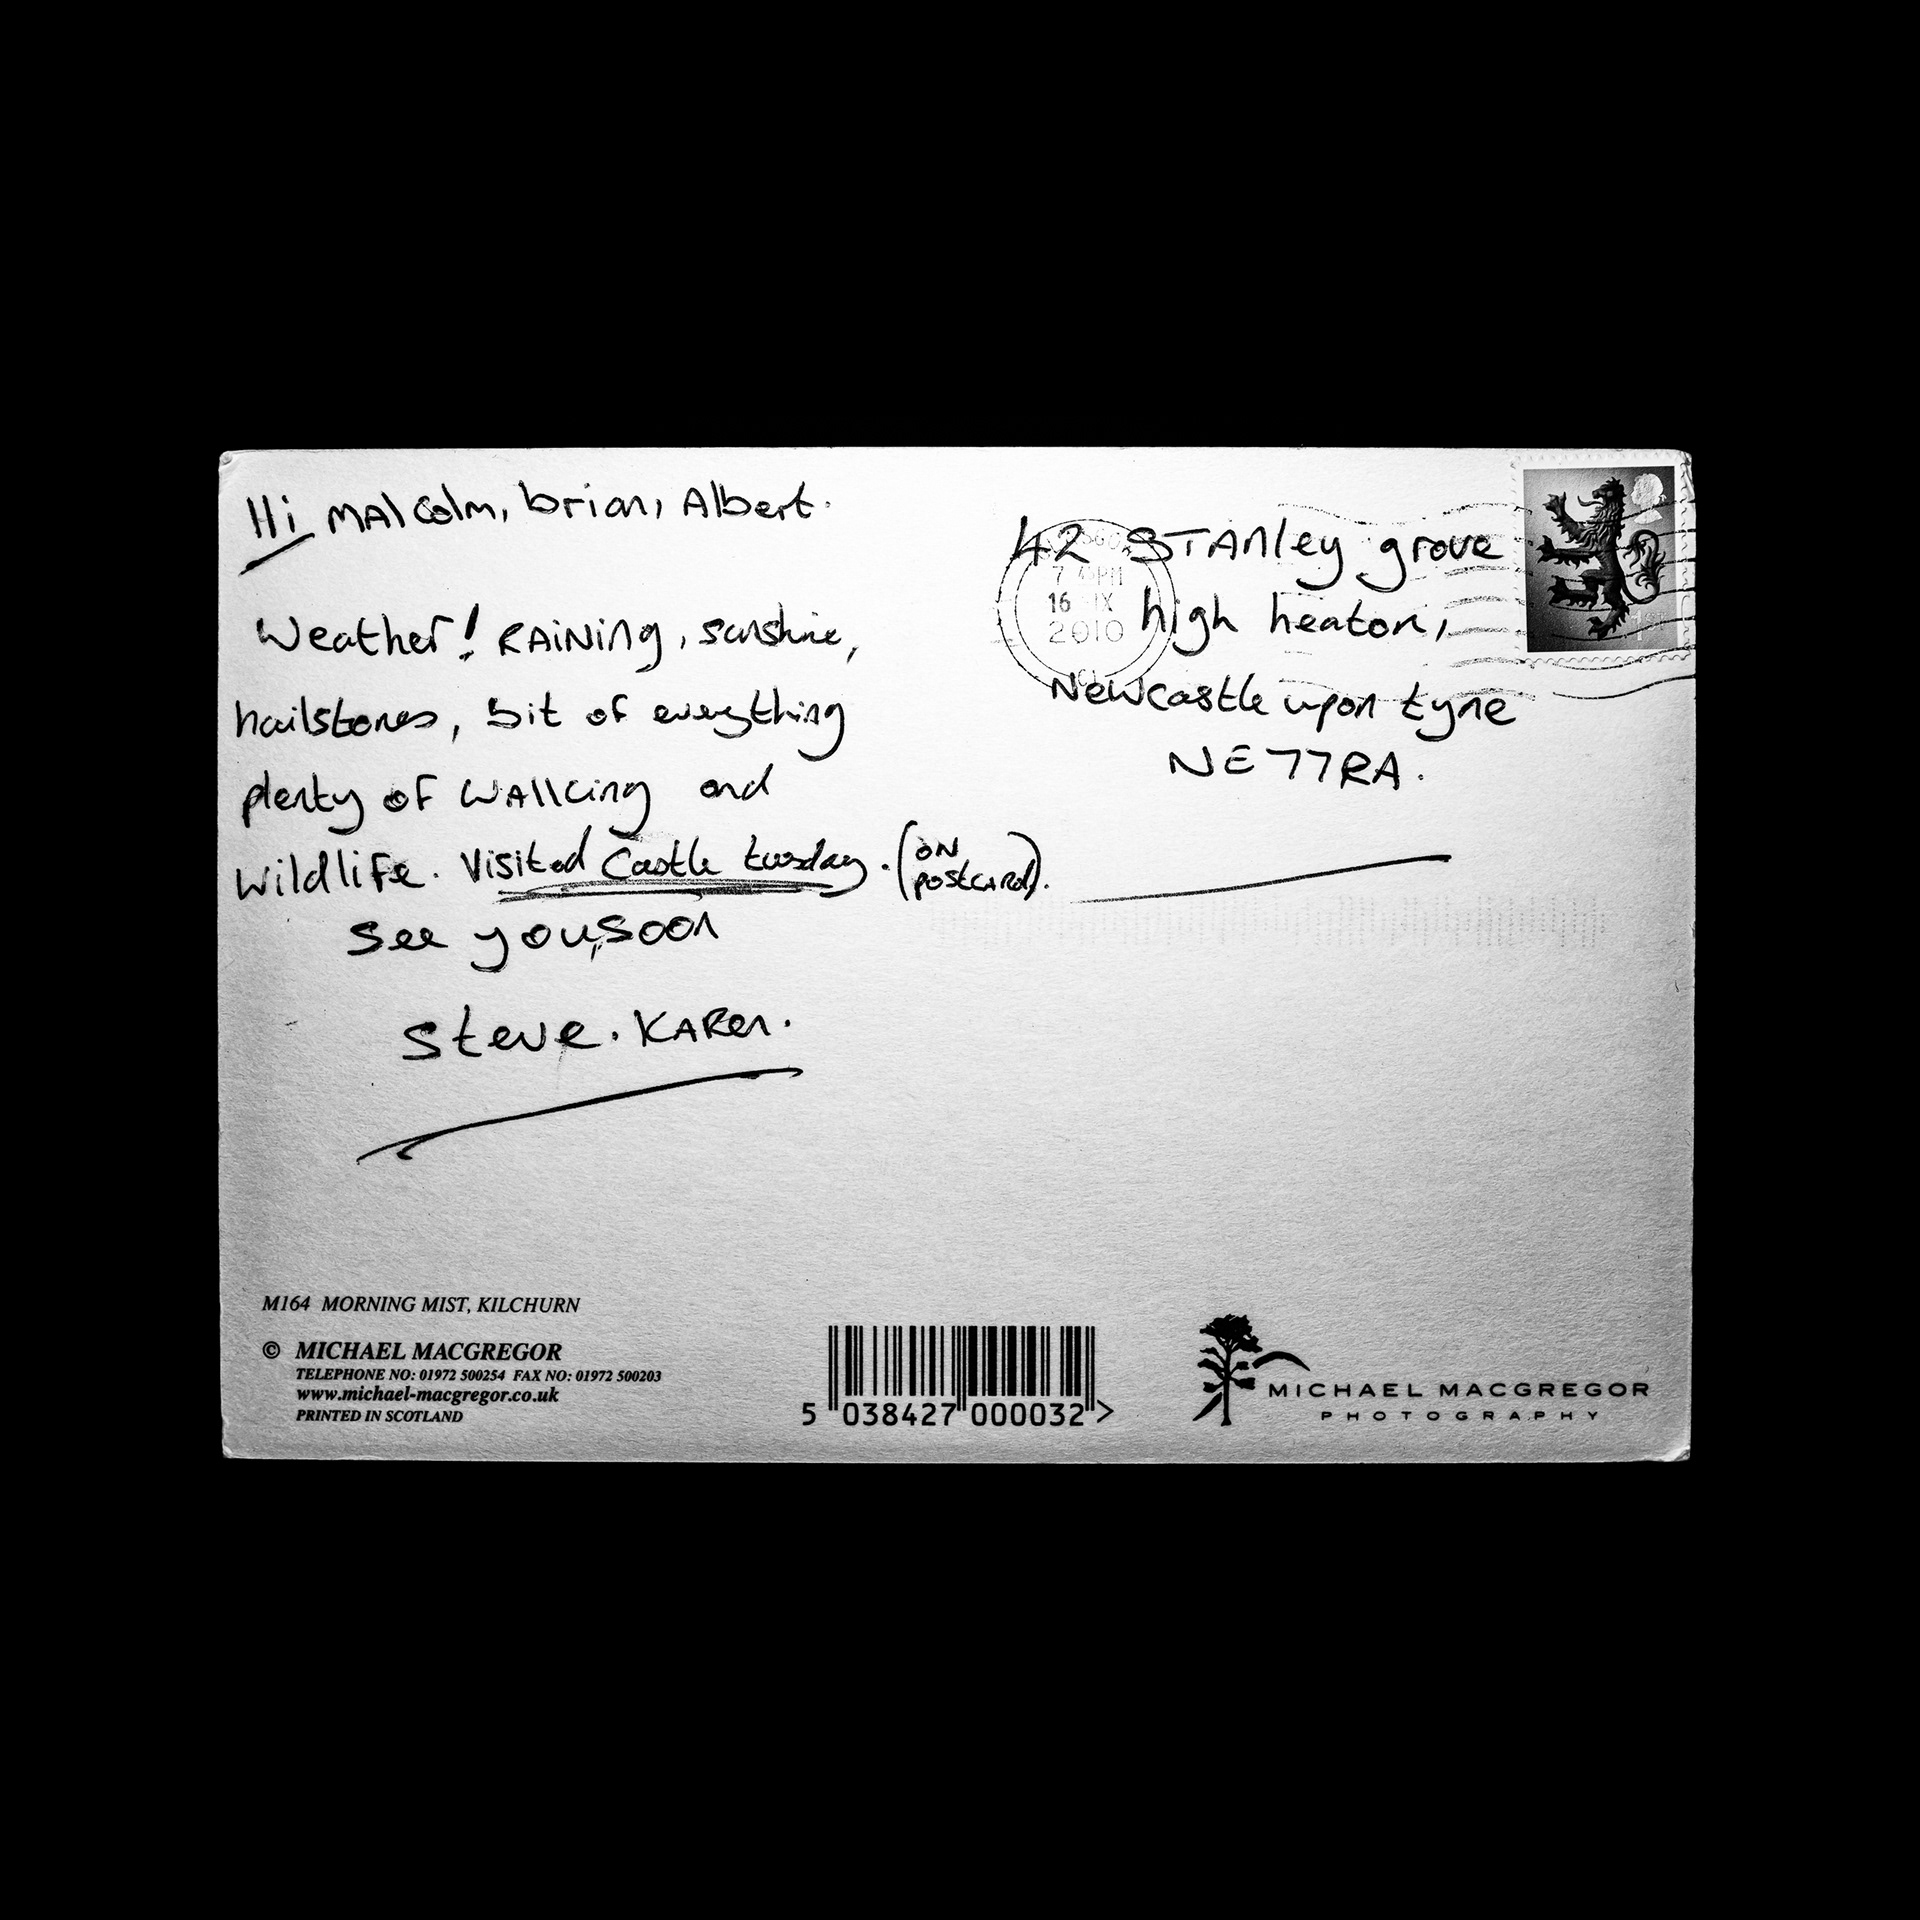 Hi MAlcolm, brian, Albert.
Weather! RAiNing, sunshine,
hailstones, bit of everything
plenty of WAlking and
wildlife. Visited Castle tuesday. (ON
POSTCARD).
See you soon
Steve. KARen.
42 STAnley grove
high heaton,
Newcastle upon tyne
NE77RA.
7 PM
16 IX
2010
1st
M164 MORNING MIST, KILCHURN
© MICHAEL MACGREGOR
TELEPHONE NO: 01972 500254 FAX NO: 01972 500203
www.michael-macgregor.co.uk
PRINTED IN SCOTLAND
5 038427 000032 >
MICHAEL MACGREGOR
PHOTOGRAPHY